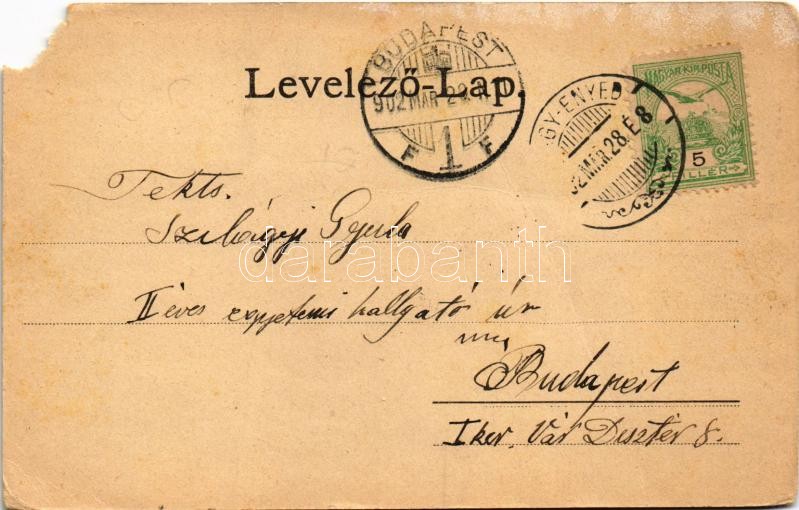 Levelező-Lap.
BUDAPEST
902 MÁR 29
F 1 F
GY-ENYED
02 MÁR. 28. É 8
MAGYAR KIR. POSTA
5
FILLÉR
Tekts.
Szilágyi Gyula
II éves egyetemi hallgató úr
Budapest
I ker. Vár Disztér 8.
darabanth